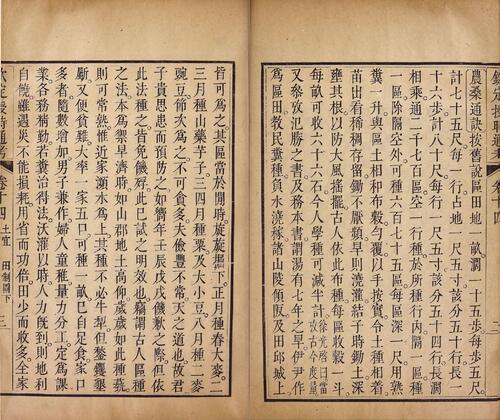 農桑通訣按舊說區田地一畝濶一十五步每步五尺
計七十五尺每一行占地一尺五寸該分五十行長一
十六步計八十尺每行一尺五寸該分五十四行長濶
相乘通二千七百區空一行種於所種行內隔一區種
一區除隔空外可種六百七十五區每區深一尺用熟
糞一升與區土相和布穀勻覆以手按實令土種相着
苗出看稀稠存留鋤不厭頻旱則澆灌結子時鋤土深
壅其根以防大風搖擺古人依此布種每區收穀一斗
每畝可收六十六石今人學種可減半計
又參攷氾勝之書及務本書謂湯有七年之旱伊尹作
為區田教民糞種負水澆稼諸山陵傾阪及田邱城上
皆可為之其區當於閒時旋旋掘下正月種春大麥二
三月種山藥芋子三四月種粟及大小豆八月種二麥
豌豆節次為之不可貪多夫儉豐不常天之道也故君
子貴思患而預防之如嚮年壬辰戊戌饑歉之際但依
此法種之皆免饑殍此已試之明效也竊謂古人區種
之法本為禦旱濟時如山郡地土高仰歲歲如此種蓺
則可常熟惟近家瀕水為上其種不必牛犁但鍬钁墾
斸又便貧難大率一家五口可種一畝已自足食家口
多者隨數增加男子兼作婦人童稚量力分工定為課
業各務精勤若糞治得法沃灌以時人力既到則地利
自饒雖遇災不能損耗用省而功倍田少而收多全家
欽定授時通考 卷十四 土宜 田制圖下 三